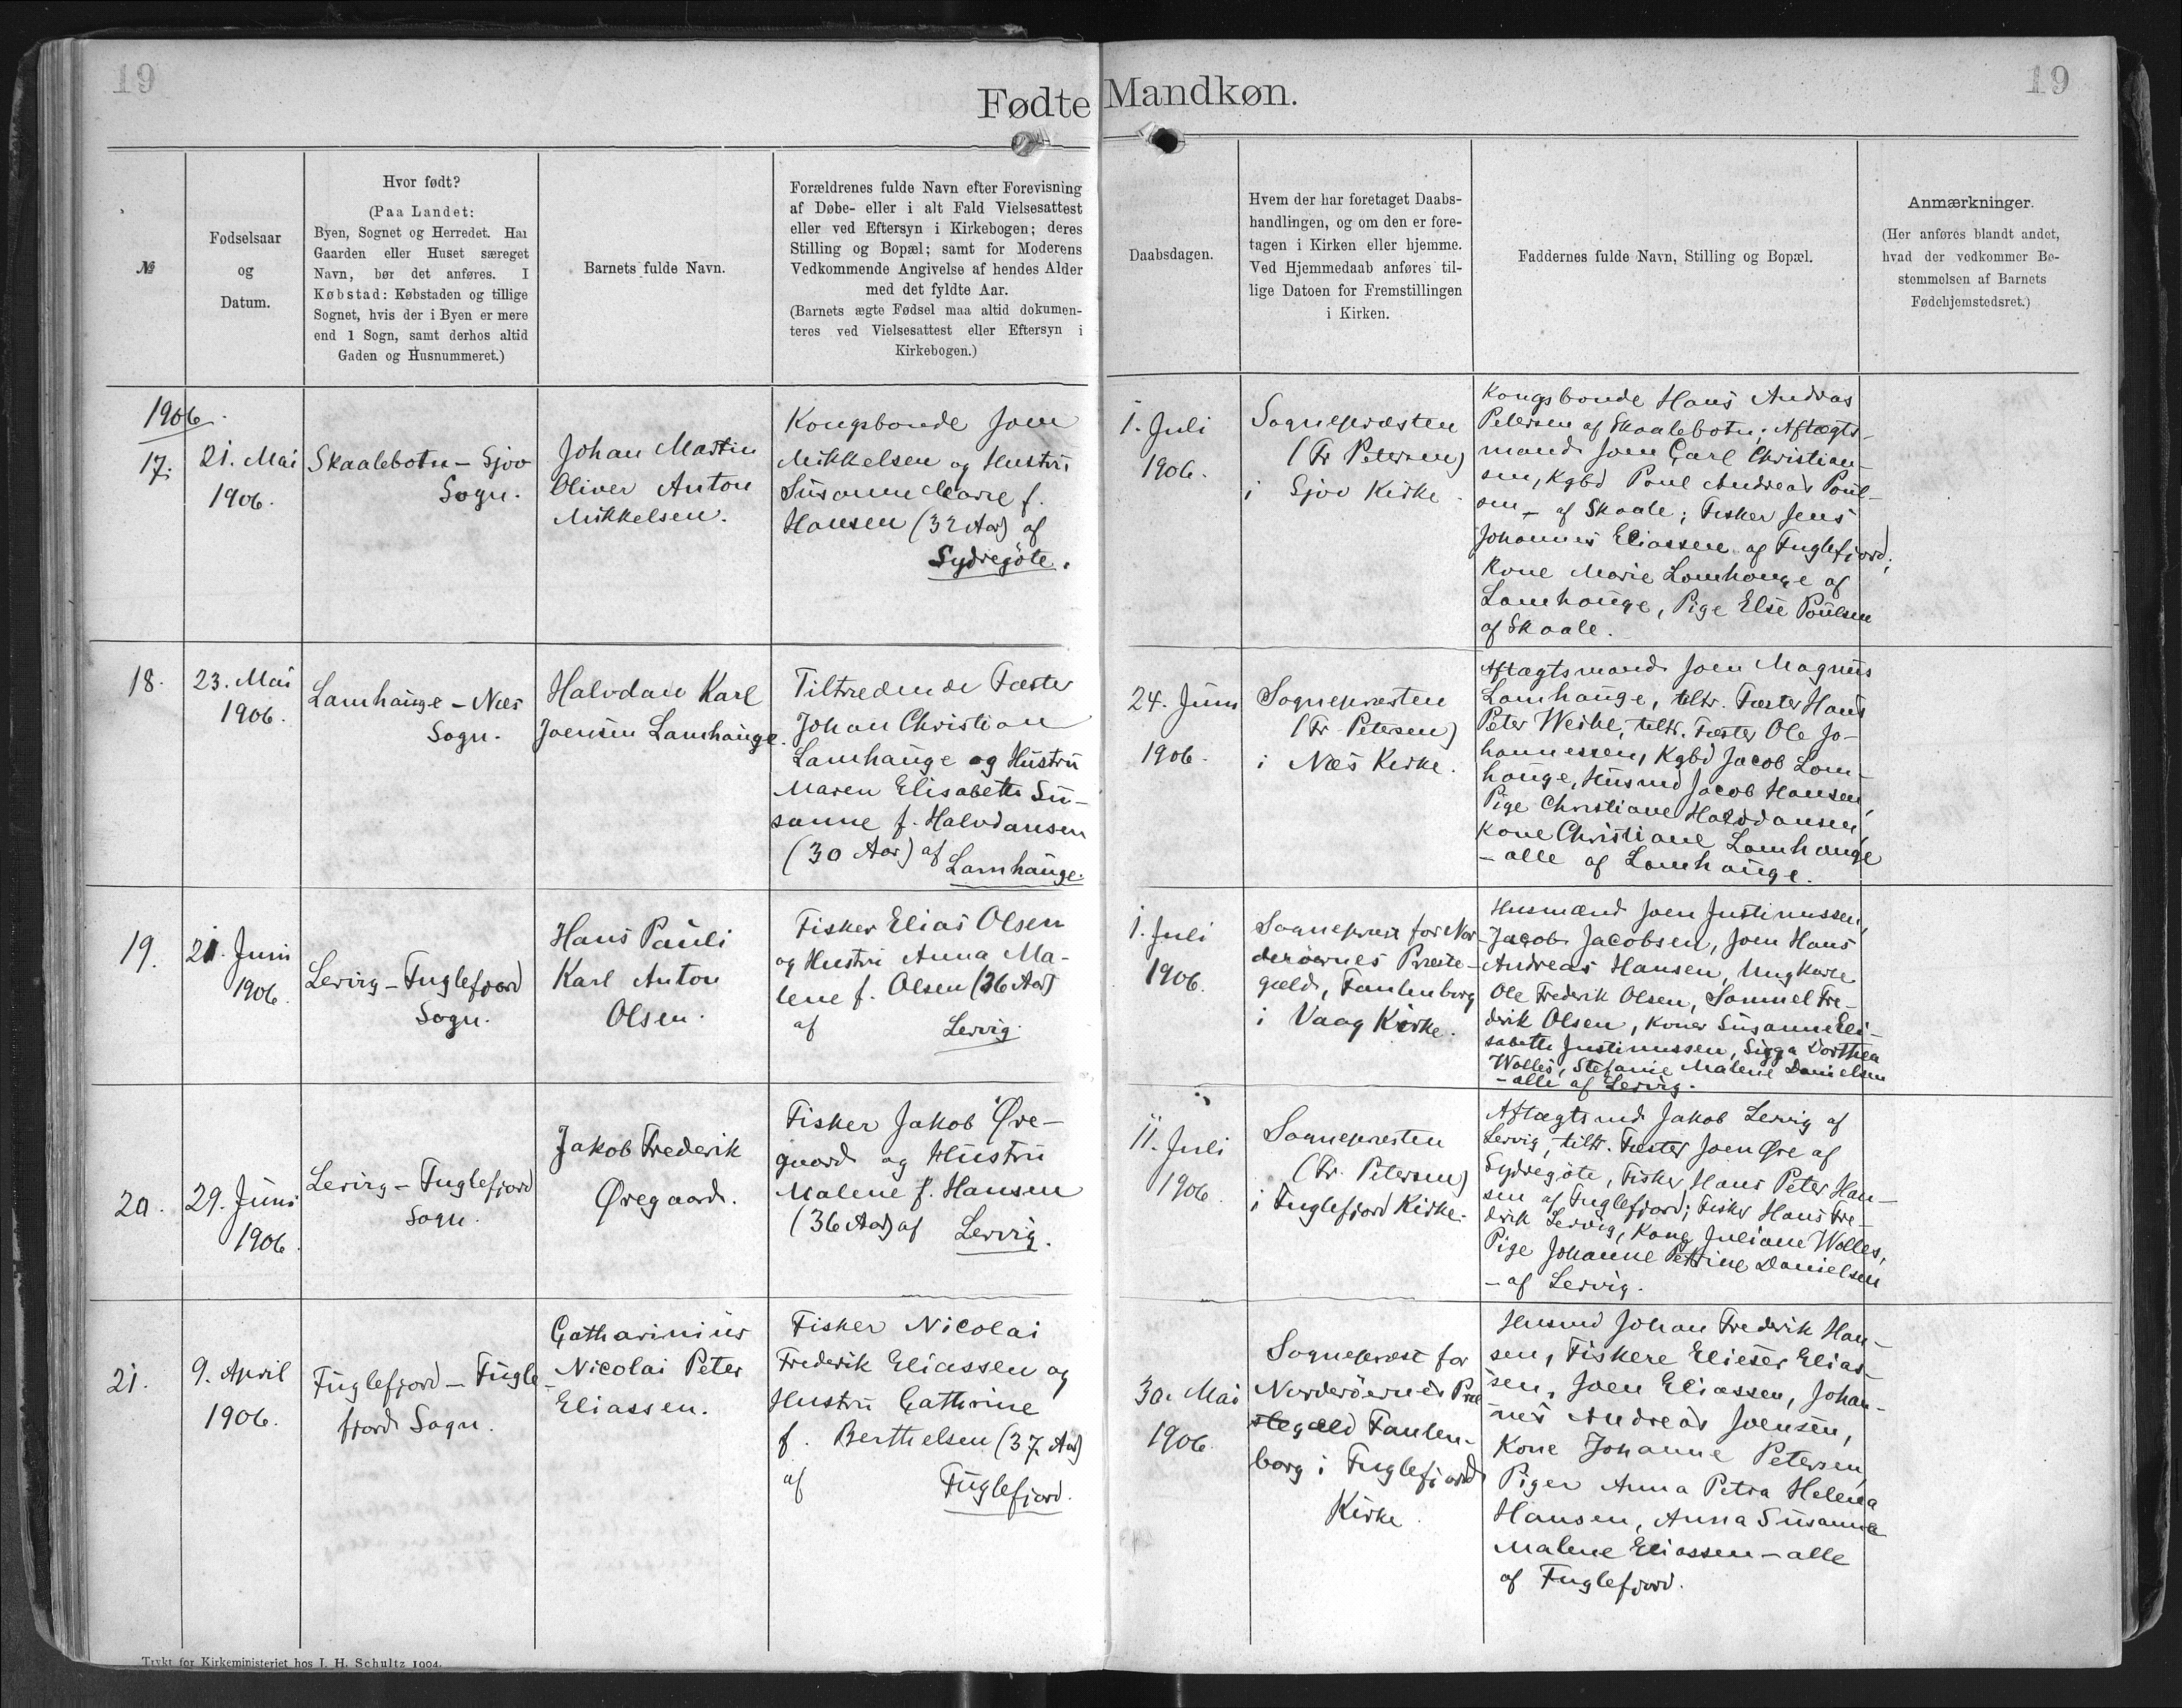 19
19
Fødte Mandkøn.
№
Fødselsaar
og
Datum.
Hvor født?
(Paa Landet:
Byen, Sognet og Herredet. Har
Gaarden eller Huset særeget
Navn, bør det anføres. I
Købstad: Købstaden og tillige
Sognet, hvis der i Byen er mere
end 1 Sogn, samt derhos altid
Gaden og Husnummeret.)
Barnets fulde Navn.
Forældrenes fulde Navn efter Forevisning
af Døbe- eller i alt Fald Vielsesattest
eller ved Eftersyn i Kirkebogen; deres
Stilling og Bopæl; samt for Moderens
Vedkommende Angivelse af hendes Alder
med det fyldte Aar.
(Barnets ægte Fødsel maa altid dokumen-
teres ved Vielsesattest eller Eftersyn i
Kirkebogen.)
Daabsdagen.
Hvem der har foretaget Daabs-
handlingen, og om den er fore-
tagen i Kirken eller hjemme.
Ved Hjemmedaab anføres til-
lige Datoen for Fremstillingen
i Kirken.
Faddernes fulde Navn, Stilling og Bopæl.
Anmærkninger.
(Her anføres blandt andet,
hvad der vedkommer Be-
stemmelsen af Barnets
Fødehjemstedsret.)
1906.
17.
21. Mai
1906.
Skaalebotn - Sjov
Sogn.
Johan Martin
Oliver Anton
Mikkelsen.
Kongsbonde Joen
Mikkelsen og Hustru
Susanne Marie f.
Hansen (32 Aar) af
Sydregöte.
1. Juli
1906.
Sognepræsten
(Fr Petersen)
i Sjov Kirke.
Kongsbonde Hans Andreas
Petersen af Skaalebotn; Aftægts-
mand Joen Carl Christian-
sen, Kgbd Poul Andreas Poul-
sen - af Skaale; Fisker Jens
Johannes Eliassen af Fuglefjord;
Kone Marie Lamhauge af
Lamhauge, Pige Else Poulsen
af Skaale.
18.
23. Mai
1906.
Lamhauge - Næs
Sogn.
Halvdan Karl
Joensen Lamhauge.
Tiltrædende Fæster
Johan Christian
Lamhauge og Hustru
Maren Elisabeth Su-
sanne f. Halvdansen
(30 Aar) af
Lamhauge.
24. Juni
1906.
Sognepræsten
(Fr Petersen)
i Næs Kirke.
Aftægtsmand Joen Magnus
Lamhauge, tiltr. Fæster Hans
Peter Weihe, tiltr. Fæster Ole Jo-
hannessen, Kgbd Jacob Lam-
hauge, Husmd Jacob Hansen,
Pige Christiane Halvdansen,
Kone Christiane Lamhauge
- alle af Lamhauge.
19.
21. Juni
1906.
Lervig - Fuglefjord
Sogn.
Hans Pauli
Karl Anton
Olsen.
Fisker Elias Olsen
og Hustru Anna Ma-
lene f. Olsen (36 Aar)
af Lervig.
1. Juli
1906.
Sognepræst for Nor-
derøernes Præste-
gæld, Fanlenborg
i Vaag Kirke.
Husmænd Joen Justinussen,
Jacob Jacobsen, Joen Hans
Andreas Hansen, Ungkarle
Ole Frederik Olsen, Samuel Fre-
derik Olsen, Koner Susanne Eli-
sabeth Justinussen, Sigga Dorthea
Wolles, Stefanie Malene Danielsen
- alle af Lervig.
20.
29. Juni
1906.
Lervig - Fuglefjord
Sogn.
Jakob Frederik
Øregaard.
Fisker Jakob Øre-
gaard og Hustru
Malene f. Hansen
(36 Aar) af Lervig.
11. Juli
1906.
Sognepræsten
(Fr. Petersen)
i Fuglefjord Kirke.
Aftægtsmd Jakob Lervig af
Lervig, tiltr. Fæster Joen Øre af
Sydregöte, Fisker Hans Peter Han-
sen af Fuglefjord; Fisker Hans Fre-
derik Lervig, Kone Juliane Wolles,
Pige Johanne Petrine Danielsen
- af Lervig.
21.
9. April
1906.
Fuglefjord - Fugle-
fjord Sogn.
Catharinius
Nicolai Peter
Eliassen.
Fisker Nicolai
Frederik Eliassen og
Hustru Cathrine
f. Berthelsen (37 Aar)
af Fuglefjord.
30. Mai
1906.
Sognepræst for
Norderøernes Præ
stegæld Fanlen-
borg i Fuglefjord
Kirke.
Husmd Johan Frederik Han-
sen, Fiskere Elieser Elias-
sen, Joen Eliassen, Johan-
nes Andreas Joensen,
Kone Johanne Petersen,
Piger Anna Petra Helena
Hansen, Anna Susanna
Malene Eliassen - alle
af Fuglefjord.
Trykt for Kirkeministeriet hos J. H. Schultz 1904.